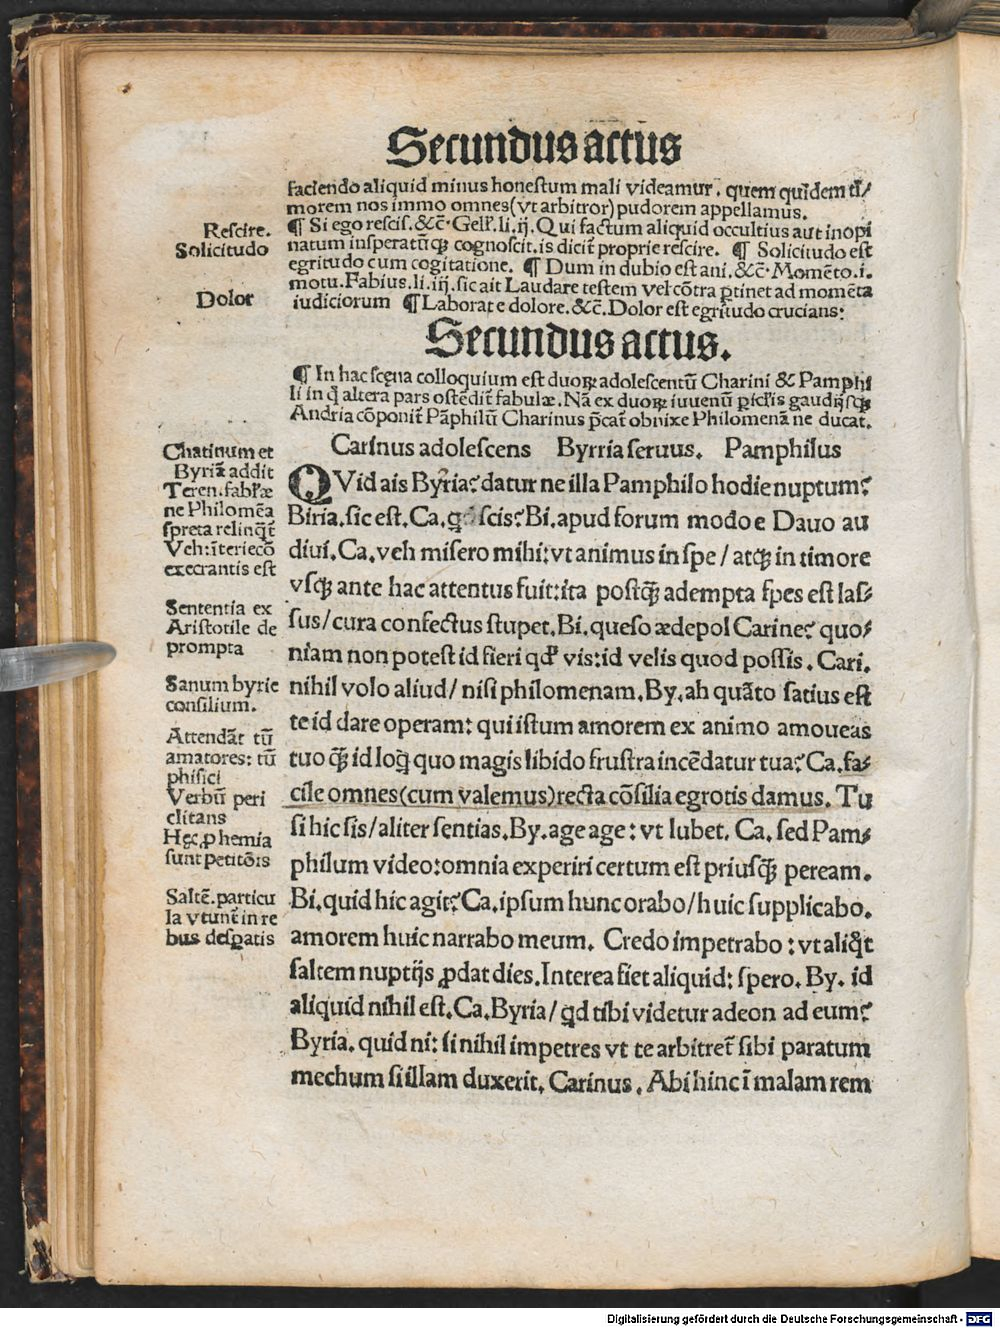 Secundus actus
faciendo aliquid minus honestum mali videamur. quem quidem ti/
morem nos immo omnes (vt arbitror) pudorem appellamus.
¶ Si ego resciſ. &c̄. Gell'. li. ij. Qui factum aliquid occultius aut inopi
natum insperatūqꝫ cognoscit. is dicit̃ proprie rescire. ¶ Solicitudo est
egritudo cum cogitatione. ¶ Dum in dubio est ani. &c̄. Momēto. i.
motu. Fabius. li. iij. sic ait Laudare testem vel cōtra ꝑtinet ad momēta
iudiciorum ¶ Laborat e dolore. &c̄. Dolor est egritudo crucians:
Rescire.
Solicitudo
Dolor
Secundus actus.
¶ In hac scęna colloquium est duoꝝ adolescentū Charini & Pamphi
li in q̄ altera pars ostēdit̃ fabulæ. Nā ex duoꝝ iuuenū ꝑic̄lis gaudijsqꝫ
Andria cōponit̃ Pāphilū Charinus p̄cat̃ obnixe Philomenā ne ducat.
Carinus adolescens Byrria seruus. Pamphilus
QVid ais Byria? datur ne illa Pamphilo hodie nuptum?
Biria. sic est. Ca. qd scis? Bi. apud forum modo e Dauo au
diui. Ca. veh misero mihi: vt animus in spe / atqꝫ in timore
vsqꝫ ante hac attentus fuit: ita postqꝫ̄ adempta spes est las/
sus / cura confectus stupet. Bi. queso ædepol Carine? quo/
niam non potest id fieri qd' vis: id velis quod possis. Cari.
nihil volo aliud / nisi philomenam. By. ah quāto satius est
te id dare operam: qui istum amorem ex animo amoueas
tuo qꝫ̄ id loq̄ quo magis libido frustra incēdatur tua? Ca. fa/
cile omnes (cum valemus) recta cōsilia egrotis damus. Tu
si hic sis / aliter sentias. By. age age: vt lubet. Ca. sed Pam/
philum video: omnia experiri certum est priusqꝫ̄ peream.
Bi. quid hic agit? Ca. ipsum hunc orabo / huic supplicabo.
amorem huic narrabo meum. Credo impetrabo: vt aliq̊t
saltem nuptijs ꝓdat dies. Interea fiet aliquid: spero. By. id
aliquid nihil est. Ca. Byria / qd tibi videtur adeon ad eum?
Byria. quid ni: si nihil impetres vt te arbitret̃ sibi paratum
mechum si illam duxerit. Carinus. Abi hinc ī malam rem
Chatinum et
Byriā addit
Teren. fab'læ
ne Philomēa
spreta relinq̄t̃
Veh: īteriecō
execrantis est
Sententia ex
Aristotile de
prompta
Sanum byrie
consilium.
Attendāt tū
amatores: tū
phisici
Verbū peri
clitans
Hęc ꝓhemia
sunt petitōis
Saltē. particu
la vtunt̃ in re
bus desꝑatis
Digitalisierung gefördert durch die Deutsche Forschungsgemeinschaft - DFG